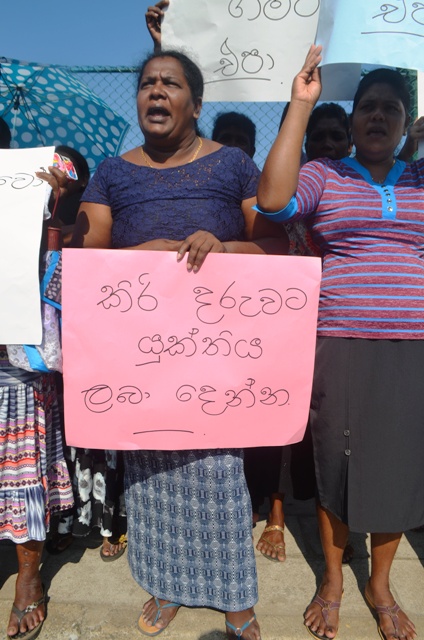 ගමට
එපා
එපා
කිරි දරුවට
යුක්තිය
ලබා දෙන්න.